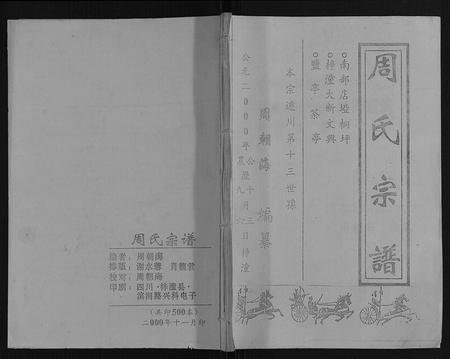 周氏宗譜
◎南部店埡桐坪
◎梓潼大新文興
◎鹽亭茶亭
本宗進川第十三世孫
周朝海 編纂
公元二000年公十三
農歷九月六日梓潼
周氏宗谱
编者: 周朝海
排版: 谢水蓉
校对: 周朝海
印刷: 四川·梓潼县·
滨河路兴科电子
(共印500本)
二000年十一月印